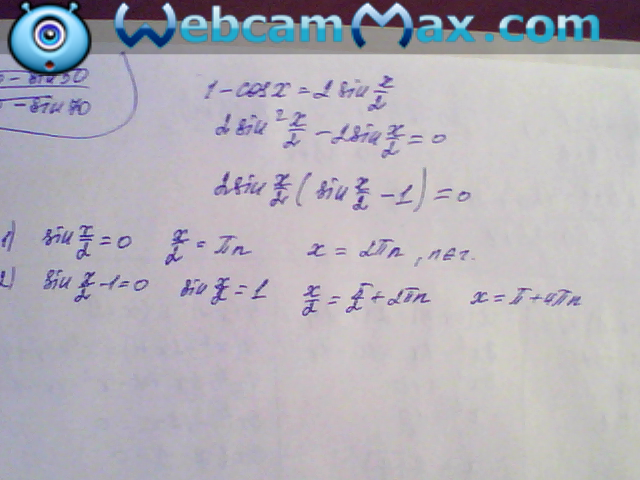 WebcamMax.com
1 - cos x = 2 sin x/2
2 sin² x/2 - 2 sin x/2 = 0
2 sin x/2 ( sin x/2 - 1 ) = 0
1) sin x/2 = 0   x/2 = πn   x = 2πn, n∈Z.
2) sin x/2 - 1 = 0   sin x/2 = 1   x/2 = π/2 + 2πn   x = π + 4πn